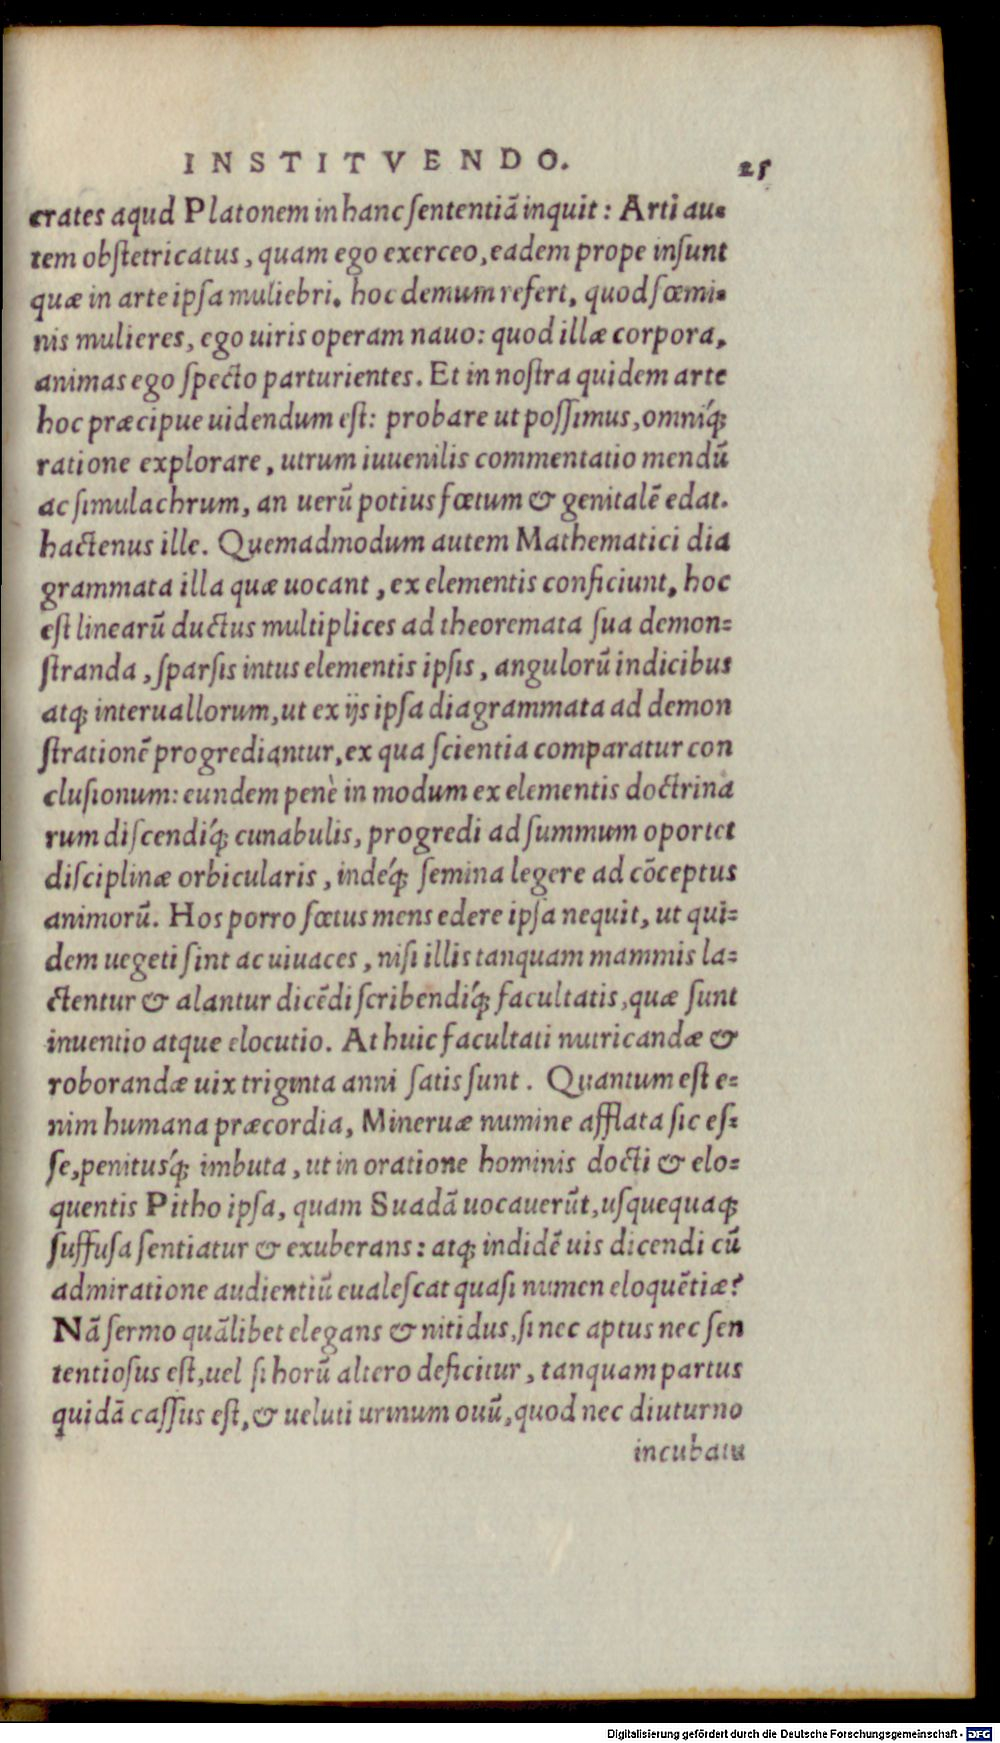 INSTITVENDO. 25
crates aqud Platonem in hanc ſententiã inquit: Arti au-
tem obſtetricatus, quam ego exerceo, eadem prope inſunt
quæ in arte ipſa muliebri. hoc demum refert, quod fœmi-
nis mulieres, ego uiris operam nauo: quod illæ corpora,
animas ego ſpecto parturientes. Et in noſtra quidem arte
hoc præcipue uidendum eſt: probare ut poſſimus, omniq́;
ratione explorare, utrum iuuenilis commentatio mendũ
ac ſimulachrum, an uerũ potius fœtum & genitalẽ edat.
hactenus ille. Quemadmodum autem Mathematici dia
grammata illa quæ uocant, ex elementis conficiunt, hoc
eſt linearũ ductus multiplices ad theoremata ſua demon=
ſtranda, ſparſis intus elementis ipſis, angulorũ indicibus
atq; interuallorum, ut ex ijs ipſa diagrammata ad demon
ſtrationẽ progrediantur, ex qua ſcientia comparatur con
cluſionum: eundem penè in modum ex elementis doctrina
rum diſcendiq́; cunabulis, progredi ad ſummum oportet
diſciplinæ orbicularis, indeq́; ſemina legere ad cõceptus
animorũ. Hos porro fœtus mens edere ipſa nequit, ut qui=
dem uegeti ſint ac uiuaces, niſi illis tanquam mammis la=
ctentur & alantur dicẽdi ſcribendiq́; facultatis, quæ ſunt
inuentio atque elocutio. At huic facultati nutricandæ &
roborandæ uix triginta anni ſatis ſunt. Quantum eſt e=
nim humana præcordia, Mineruæ numine afflata ſic eſ=
ſe, penitusq́; imbuta, ut in oratione hominis docti & elo=
quentis Pitho ipſa, quam Suadã uocauerũt, uſquequaq;
ſuffuſa ſentiatur & exuberans: atq; indidẽ uis dicendi cũ
admiratione audientiũ eualeſcat quaſi numen eloquẽtiæ?
Nã ſermo quãlibet elegans & nitidus, ſi nec aptus nec ſen
tentioſus eſt, uel ſi horũ altero deficitur, tanquam partus
quidã caſſus eſt, & ueluti urinum ouũ, quod nec diuturno
incubatu
Digitalisierung gefördert durch die Deutsche Forschungsgemeinschaft - DFG